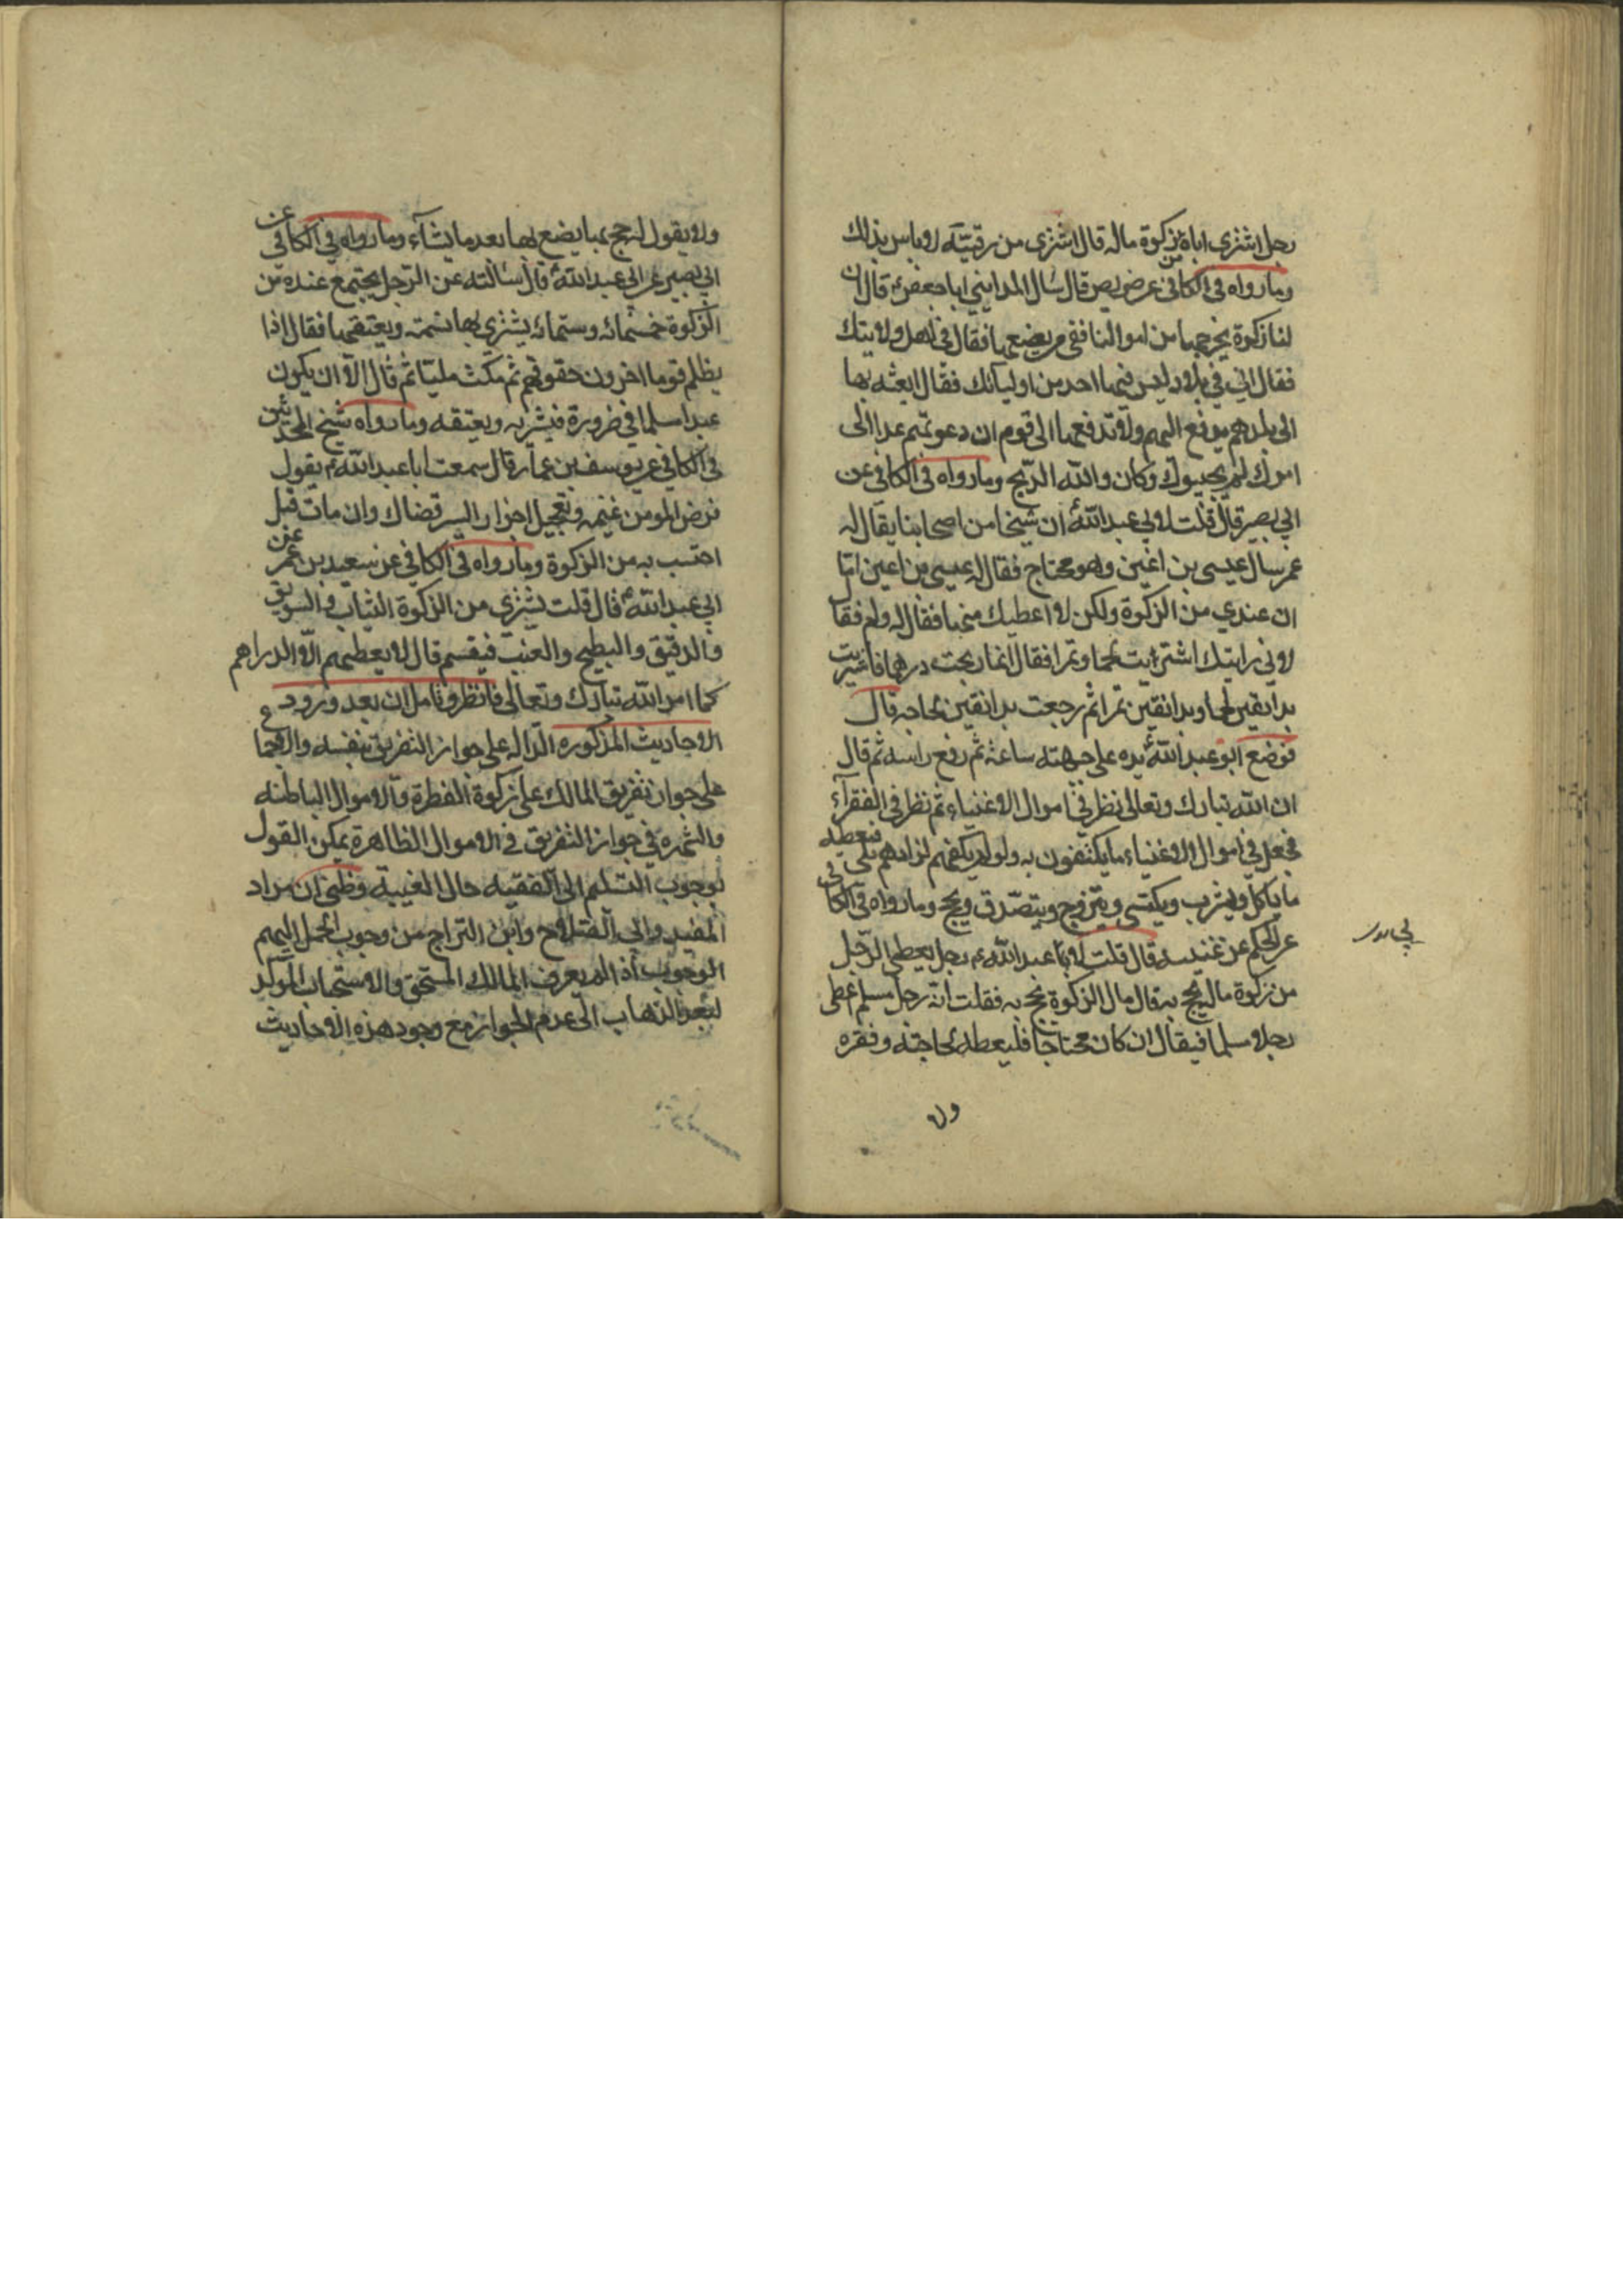 رجل اشترى اباه من زكوة ماله قال اشترى من رقبته لا باس بذلك
وما رواه فى الكافى عن ضريس قال سال المداينى ابا جعفر ع قال ان
لنا زكوة نخرجها من اموالنا ففى من نضعها فقال فى اهل ولايتك
فقال انى فى بلاد ليس فيها احد من اوليائك فقال ابعث بها
الى بلدهم يدفع اليهم ولا تدفعها الى قوم ان دعوتهم غدا الى
امرك لم يجيبوك وكان والله الذبح وما رواه فى الكافى عن
ابى بصير قال قلت لابى عبدالله ع ان شيخا من اصحابنا يقال له
عمر سال عيسى بن اعين وهو محتاج فقال له عيسى بن اعين اما
ان عندي من الزكوة ولكن لا اعطيك منها فقال له ولم فقال
لانى رايتك اشتريت لحما وتمرا فقال انما ربحت درهما فاشتريت
بدانقين لحما وبدانقين تمرا ثم رجعت بدانقين لحاجه قال
فوضع ابو عبدالله ع يده على جبهته ساعة ثم رفع راسه ثم قال
ان الله تبارك وتعالى نظر فى اموال الاغنياء ثم نظر فى الفقرآء
فجعل فى اموال الاغنياء ما يكتفون به ولو لم يكفهم لزادهم بلى فيعطيه
ما ياكل ويشرب ويكتسى ويتزوج ويتصدق ويحج وما رواه فى الكافى
عن الحكم بن عتيبه قال قلت لابى عبدالله ع رجل يعطى الرجل
من زكوة ماله يحج به قال مال الزكوة يحج به فقلت انه رجل مسلم اعطى
رجلا مسلما فيقال ان كان محتاجا فليعطه لحاجته وفقره
ولا
ولا يقول له حج بها يضع بها بعد ما يشآء وما رواه فى الكافى عن
ابى بصير عن ابى عبدالله ع قال سالته عن الرجل يجتمع عنده من
الزكوة خمسمائه وستمائه يشترى بها نسمة ويعتقها فقال اذا
يظلم قوما اخرون حقوقهم ثم مكث مليا ثم قال الا ان يكون
عبدا مسلما فى ضرورة فيشتريه ويعتقه وما رواه شيخ المحدثين
فى الكافى عن يوسف بن عمار قال سمعت ابا عبدالله ع يقول
قرض المومن غنيمه وتعجيل اجر ان ايسر قضاك وان مات قبل
احتسب به من الزكوة وما رواه فى الكافى عن سعيد بن عمر عن
ابى عبدالله ع قال قلت يشترى من الزكوة الثياب والسويق
والدقيق والبطيخ والعنب فيقسم قال لا يعطيهم الا الدراهم
كما امر الله تبارك وتعالى فانظر وتامل ان بعد ورود
الاحاديث المذكوره الداله على جواز التفريق بنفسه
على جواز تفريق المالك على زكوة الفطرة والاموال الباطنه
والشهره فى جواز التفريق فى الاموال الظاهرة يمكن القول
بوجوب التسليم الى الفقيه حال الغيبة وظنى ان مراد
المفيد وابى الصلاح وابن البراج من وجوب الحمل اليهم
الوجوب اذا لم يعرف المالك المستحق والاستحباب المؤكد
لبعد الذهاب الى عدم الجواز مع وجود هذه الاحاديث